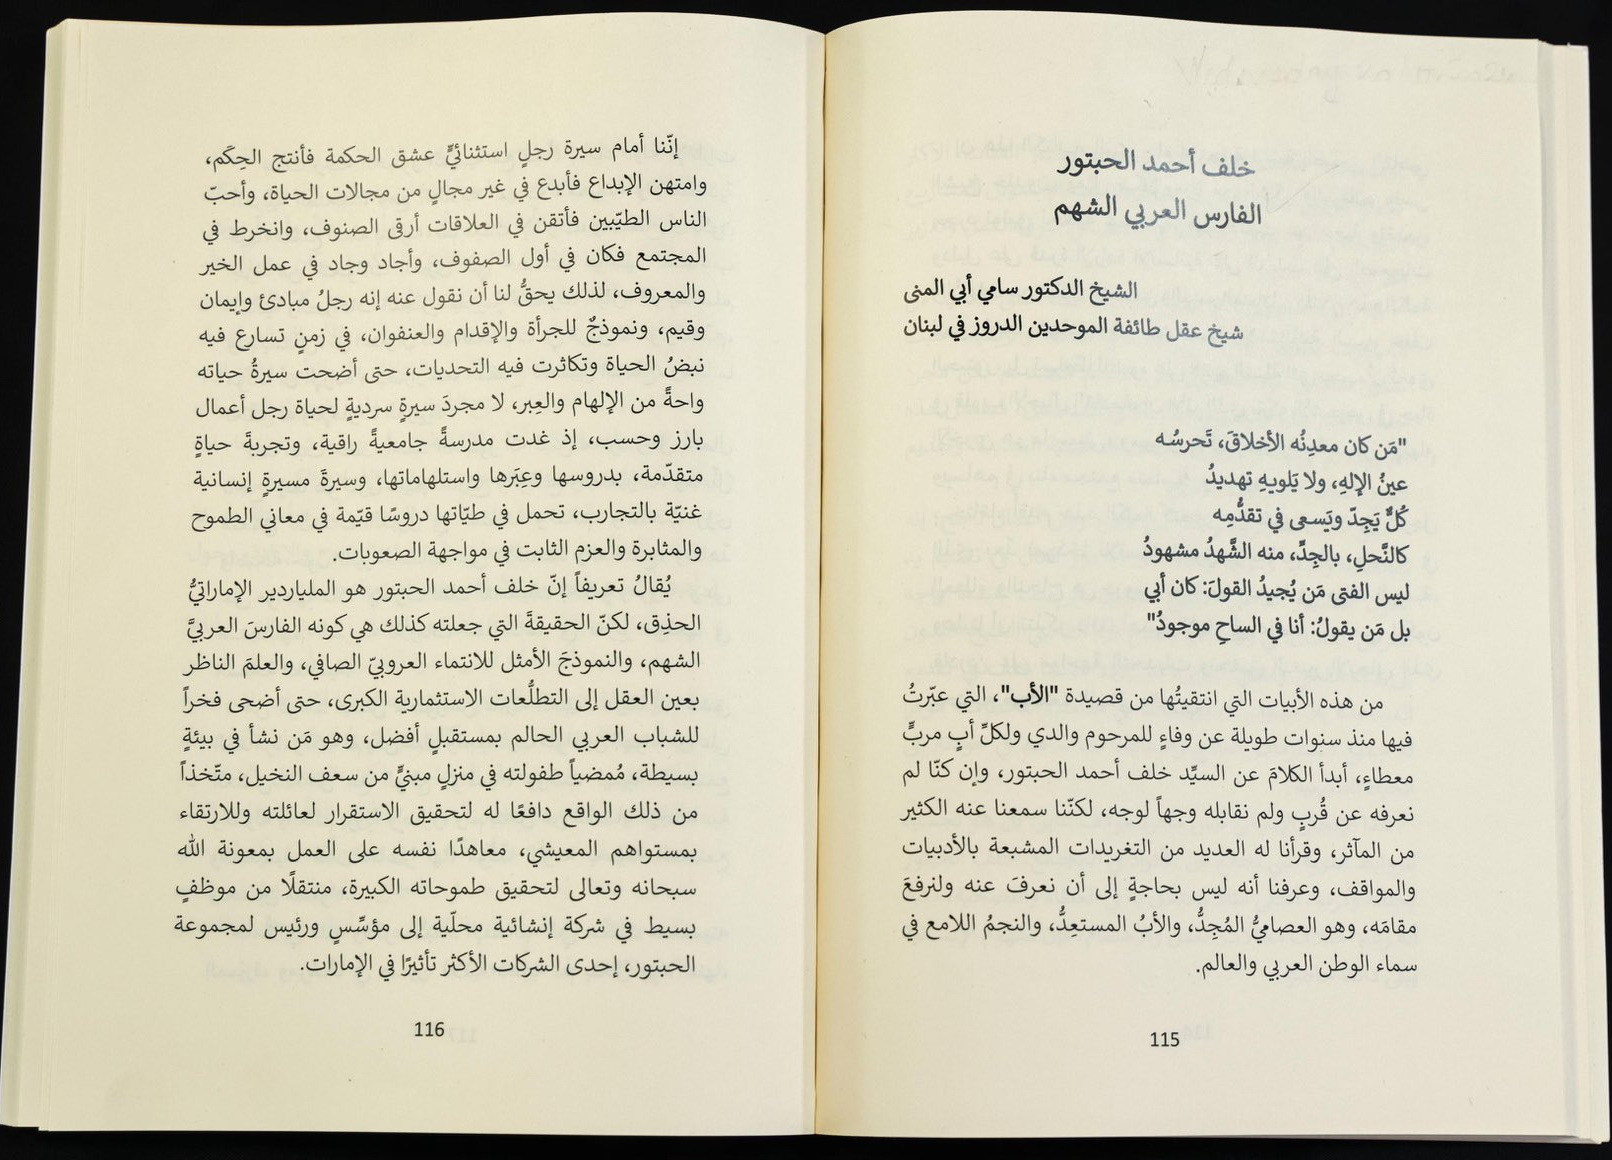 خلف أحمد الحبتور
الفارس العربي الشهم
الشيخ الدكتور سامي أبي المنى
شيخ عقل طائفة الموحدين الدروز في لبنان
"مَن كان معدِنُه الأخلاقَ، تَحرسُه
عينُ الإلهِ، ولا يَلويهِ تهديدُ
كُلٌّ يَجِدّ ويَسعى في تقدُّمِه
كالنَّحلِ، بالجِدِّ، منه الشَّهدُ مشهودُ
ليس الفتى مَن يُجيدُ القولَ: كان أبي
بل مَن يقولُ: أنا في الساحِ موجودُ"
من هذه الأبيات التي انتقيتُها من قصيدة "الأب"، التي عبّرتُ
فيها منذ سنوات طويلة عن وفاءٍ للمرحوم والدي ولكلِّ أبٍ مربٍّ
معطاءٍ، أبدأ الكلامَ عن السيِّد خلف أحمد الحبتور، وإن كنّا لم
نعرفه عن قُربٍ ولم نقابله وجهاً لوجه، لكنّنا سمعنا عنه الكثير
من المآثر، وقرأنا له العديد من التغريدات المشبعة بالأدبيات
والمواقف، وعرفنا أنه ليس بحاجةٍ إلى أن نعرفَ عنه ولنرفعَ
مقامَه، وهو العصاميُّ المُجِدُّ، والأبُ المستعِدُّ، والنجمُ اللامع في
سماء الوطن العربي والعالم.
115
إنّنا أمام سيرة رجلٍ استثنائيٍّ عشق الحكمة فأنتج الحِكَم،
وامتهن الإبداع فأبدع في غير مجالٍ من مجالات الحياة، وأحبّ
الناس الطيّبين فأتقن في العلاقات أرقى الصنوف، وانخرط في
المجتمع فكان في أول الصفوف، وأجاد وجاد في عمل الخير
والمعروف، لذلك يحقُّ لنا أن نقول عنه إنه رجلُ مبادئ وإيمان
وقيم، ونموذجٌ للجرأة والإقدام والعنفوان، في زمنٍ تسارع فيه
نبضُ الحياة وتكاثرت فيه التحديات، حتى أضحت سيرةُ حياته
واحةً من الإلهام والعِبر، لا مجردَ سيرةٍ سرديةٍ لحياة رجل أعمال
بارز وحسب، إذ غدت مدرسةً جامعيةً راقية، وتجربةَ حياةٍ
متقدّمة، بدروسها وعِبَرها واستلهاماتها، وسيرةَ مسيرةٍ إنسانية
غنيّة بالتجارب، تحمل في طيّاتها دروسًا قيّمة في معاني الطموح
والمثابرة والعزم الثابت في مواجهة الصعوبات.
يُقالُ تعريفاً إنّ خلف أحمد الحبتور هو الملياردير الإماراتيُّ
الحذِق، لكنّ الحقيقةَ التي جعلته كذلك هي كونه الفارسَ العربيَّ
الشهم، والنموذجَ الأمثل للانتماء العروبيّ الصافي، والعلمَ الناظر
بعين العقل إلى التطلُّعات الاستثمارية الكبرى، حتى أضحى فخراً
للشباب العربي الحالم بمستقبلٍ أفضل، وهو مَن نشأ في بيئةٍ
بسيطة، مُمضياً طفولته في منزلٍ مبنيٍّ من سعف النخيل، متّخذاً
من ذلك الواقع دافعًا له لتحقيق الاستقرار لعائلته وللارتقاء
بمستواهم المعيشي، معاهدًا نفسه على العمل بمعونة الله
سبحانه وتعالى لتحقيق طموحاته الكبيرة، منتقلًا من موظفٍ
بسيط في شركة إنشائية محلّية إلى مؤسِّسٍ ورئيس لمجموعة
الحبتور، إحدى الشركات الأكثر تأثيرًا في الإمارات.
116